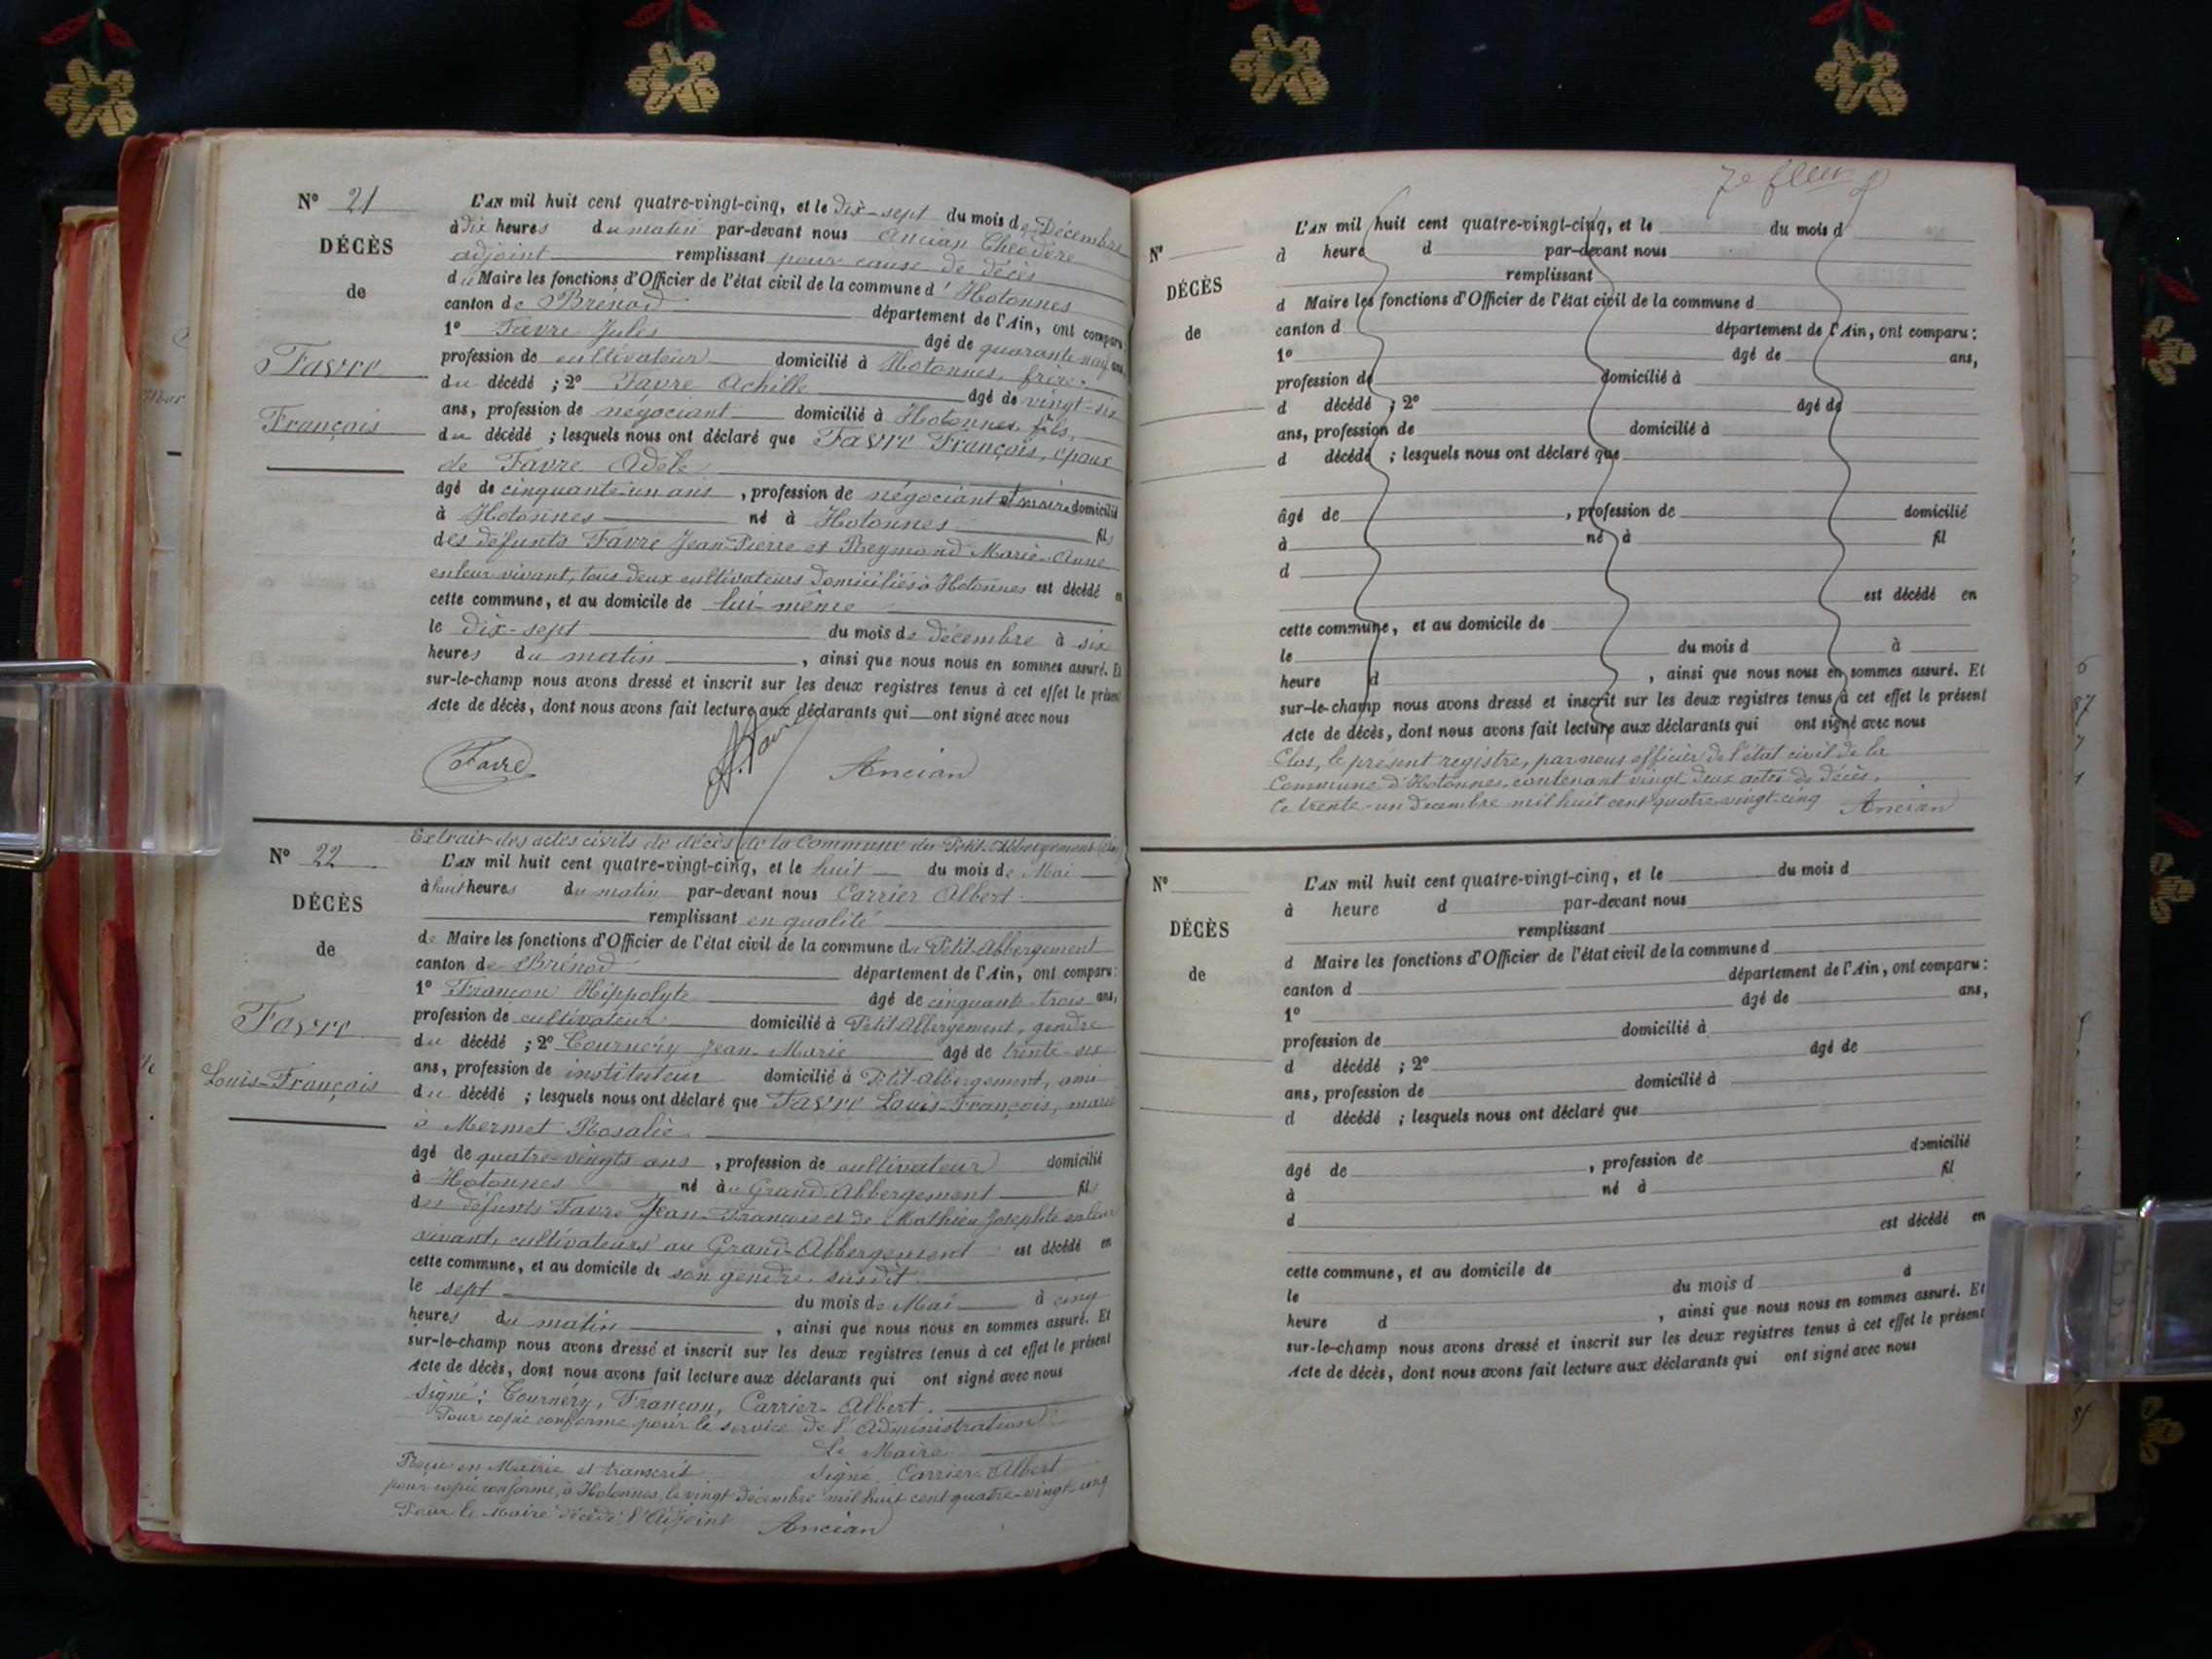 N° 21
DÉCÈS
de
Favre
François
L'AN mil huit cent quatre-vingt-cinq, et le dix-sept du mois de Décembre
à dix heures du matin par-devant nous Ancian Théodore
adjoint remplissant pour cause de décès
du Maire les fonctions d'Officier de l'état civil de la commune d'Hotonnes
canton de Brénod département de l'Ain, ont comparu
1° Favre Jules âgé de quarante-neuf ans,
profession de cultivateur domicilié à Hotonnes, frère
du décédé ; 2° Favre Achille âgé de vingt-six
ans, profession de négociant domicilié à Hotonnes, fils,
du décédé ; lesquels nous ont déclaré que Favre François, époux
de Favre Adèle
âgé de cinquante-un ans, profession de négociant et maire domicilié
à Hotonnes né à Hotonnes fils
des défunts Favre Jean-Pierre et Reymond Marie-Anne
en leur vivant, tous deux cultivateurs domiciliés à Hotonnes est décédé en
cette commune, et au domicile de lui-même
le dix-sept du mois de décembre à six
heures du matin, ainsi que nous nous en sommes assuré. Et
sur-le-champ nous avons dressé et inscrit sur les deux registres tenus à cet effet le présent
Acte de décès, dont nous avons fait lecture aux déclarants qui ont signé avec nous
Favre A. Favre Ancian
Extrait des actes civils de décès de la Commune du Petit-Abbergement (Ain)
N° 22
DÉCÈS
de
Favre
Louis-François
L'AN mil huit cent quatre-vingt-cinq, et le huit du mois de Mai
à huit heures du matin par-devant nous Carrier Albert
remplissant en qualité
de Maire les fonctions d'Officier de l'état civil de la commune du Petit-Abbergement
canton de Brénod département de l'Ain, ont comparu :
1° Françon Hippolyte âgé de cinquante-trois ans,
profession de cultivateur domicilié à Petit-Abbergement, gendre
du décédé ; 2° Tournéry Jean-Marie âgé de trente-six
ans, profession de instituteur domicilié à Petit-Abbergement, ami
du décédé ; lesquels nous ont déclaré que Favre Louis-François, marié
à Mermet Rosalie
âgé de quatre-vingts ans, profession de cultivateur domicilié
à Hotonnes né au Grand-Abbergement fils
des défunts Favre Jean-François et de Mathieu Josephte en leur
vivant, cultivateurs au Grand-Abbergement est décédé en
cette commune, et au domicile de son gendre susdit
le sept du mois de Mai à cinq
heures du matin, ainsi que nous nous en sommes assuré. Et
sur-le-champ nous avons dressé et inscrit sur les deux registres tenus à cet effet le présent
Acte de décès, dont nous avons fait lecture aux déclarants qui ont signé avec nous
Signé : Tournéry, Françon, Carrier-Albert.
Pour copie conforme pour le service de l'Administration
Le Maire
Reçu en Mairie et transcrit Signé Carrier-Albert
pour copie conforme, à Hotonnes, le vingt décembre mil huit cent quatre-vingt-cinq
Pour le Maire décédé, l'Adjoint Ancian
N°
DÉCÈS
de
L'AN mil huit cent quatre-vingt-cinq, et le du mois d
à heure d par-devant nous
remplissant
d Maire les fonctions d'Officier de l'état civil de la commune d
canton d département de l'Ain, ont comparu :
1° âgé de ans,
profession de domicilié à
d décédé ; 2° âgé de
ans, profession de domicilié à
d décédé ; lesquels nous ont déclaré que
âgé de , profession de domicilié
à né à fil
d
est décédé en
cette commune, et au domicile de
le du mois d à
heure d , ainsi que nous nous en sommes assuré. Et
sur-le-champ nous avons dressé et inscrit sur les deux registres tenus à cet effet le présent
Acte de décès, dont nous avons fait lecture aux déclarants qui ont signé avec nous
Clos, le présent registre, par nous officier de l'état civil de la
Commune d'Hotonnes, contenant vingt-deux actes de décès,
le trente-un décembre mil huit cent quatre-vingt-cinq Ancian
N°
DÉCÈS
de
L'AN mil huit cent quatre-vingt-cinq, et le du mois d
à heure d par-devant nous
remplissant
d Maire les fonctions d'Officier de l'état civil de la commune d
canton d département de l'Ain, ont comparu :
1° âgé de ans,
profession de domicilié à
d décédé ; 2° âgé de
ans, profession de domicilié à
d décédé ; lesquels nous ont déclaré que
âgé de , profession de domicilié
à né à fil
d
est décédé en
cette commune, et au domicile de
le du mois d à
heure d , ainsi que nous nous en sommes assuré. Et
sur-le-champ nous avons dressé et inscrit sur les deux registres tenus à cet effet le présent
Acte de décès, dont nous avons fait lecture aux déclarants qui ont signé avec nous